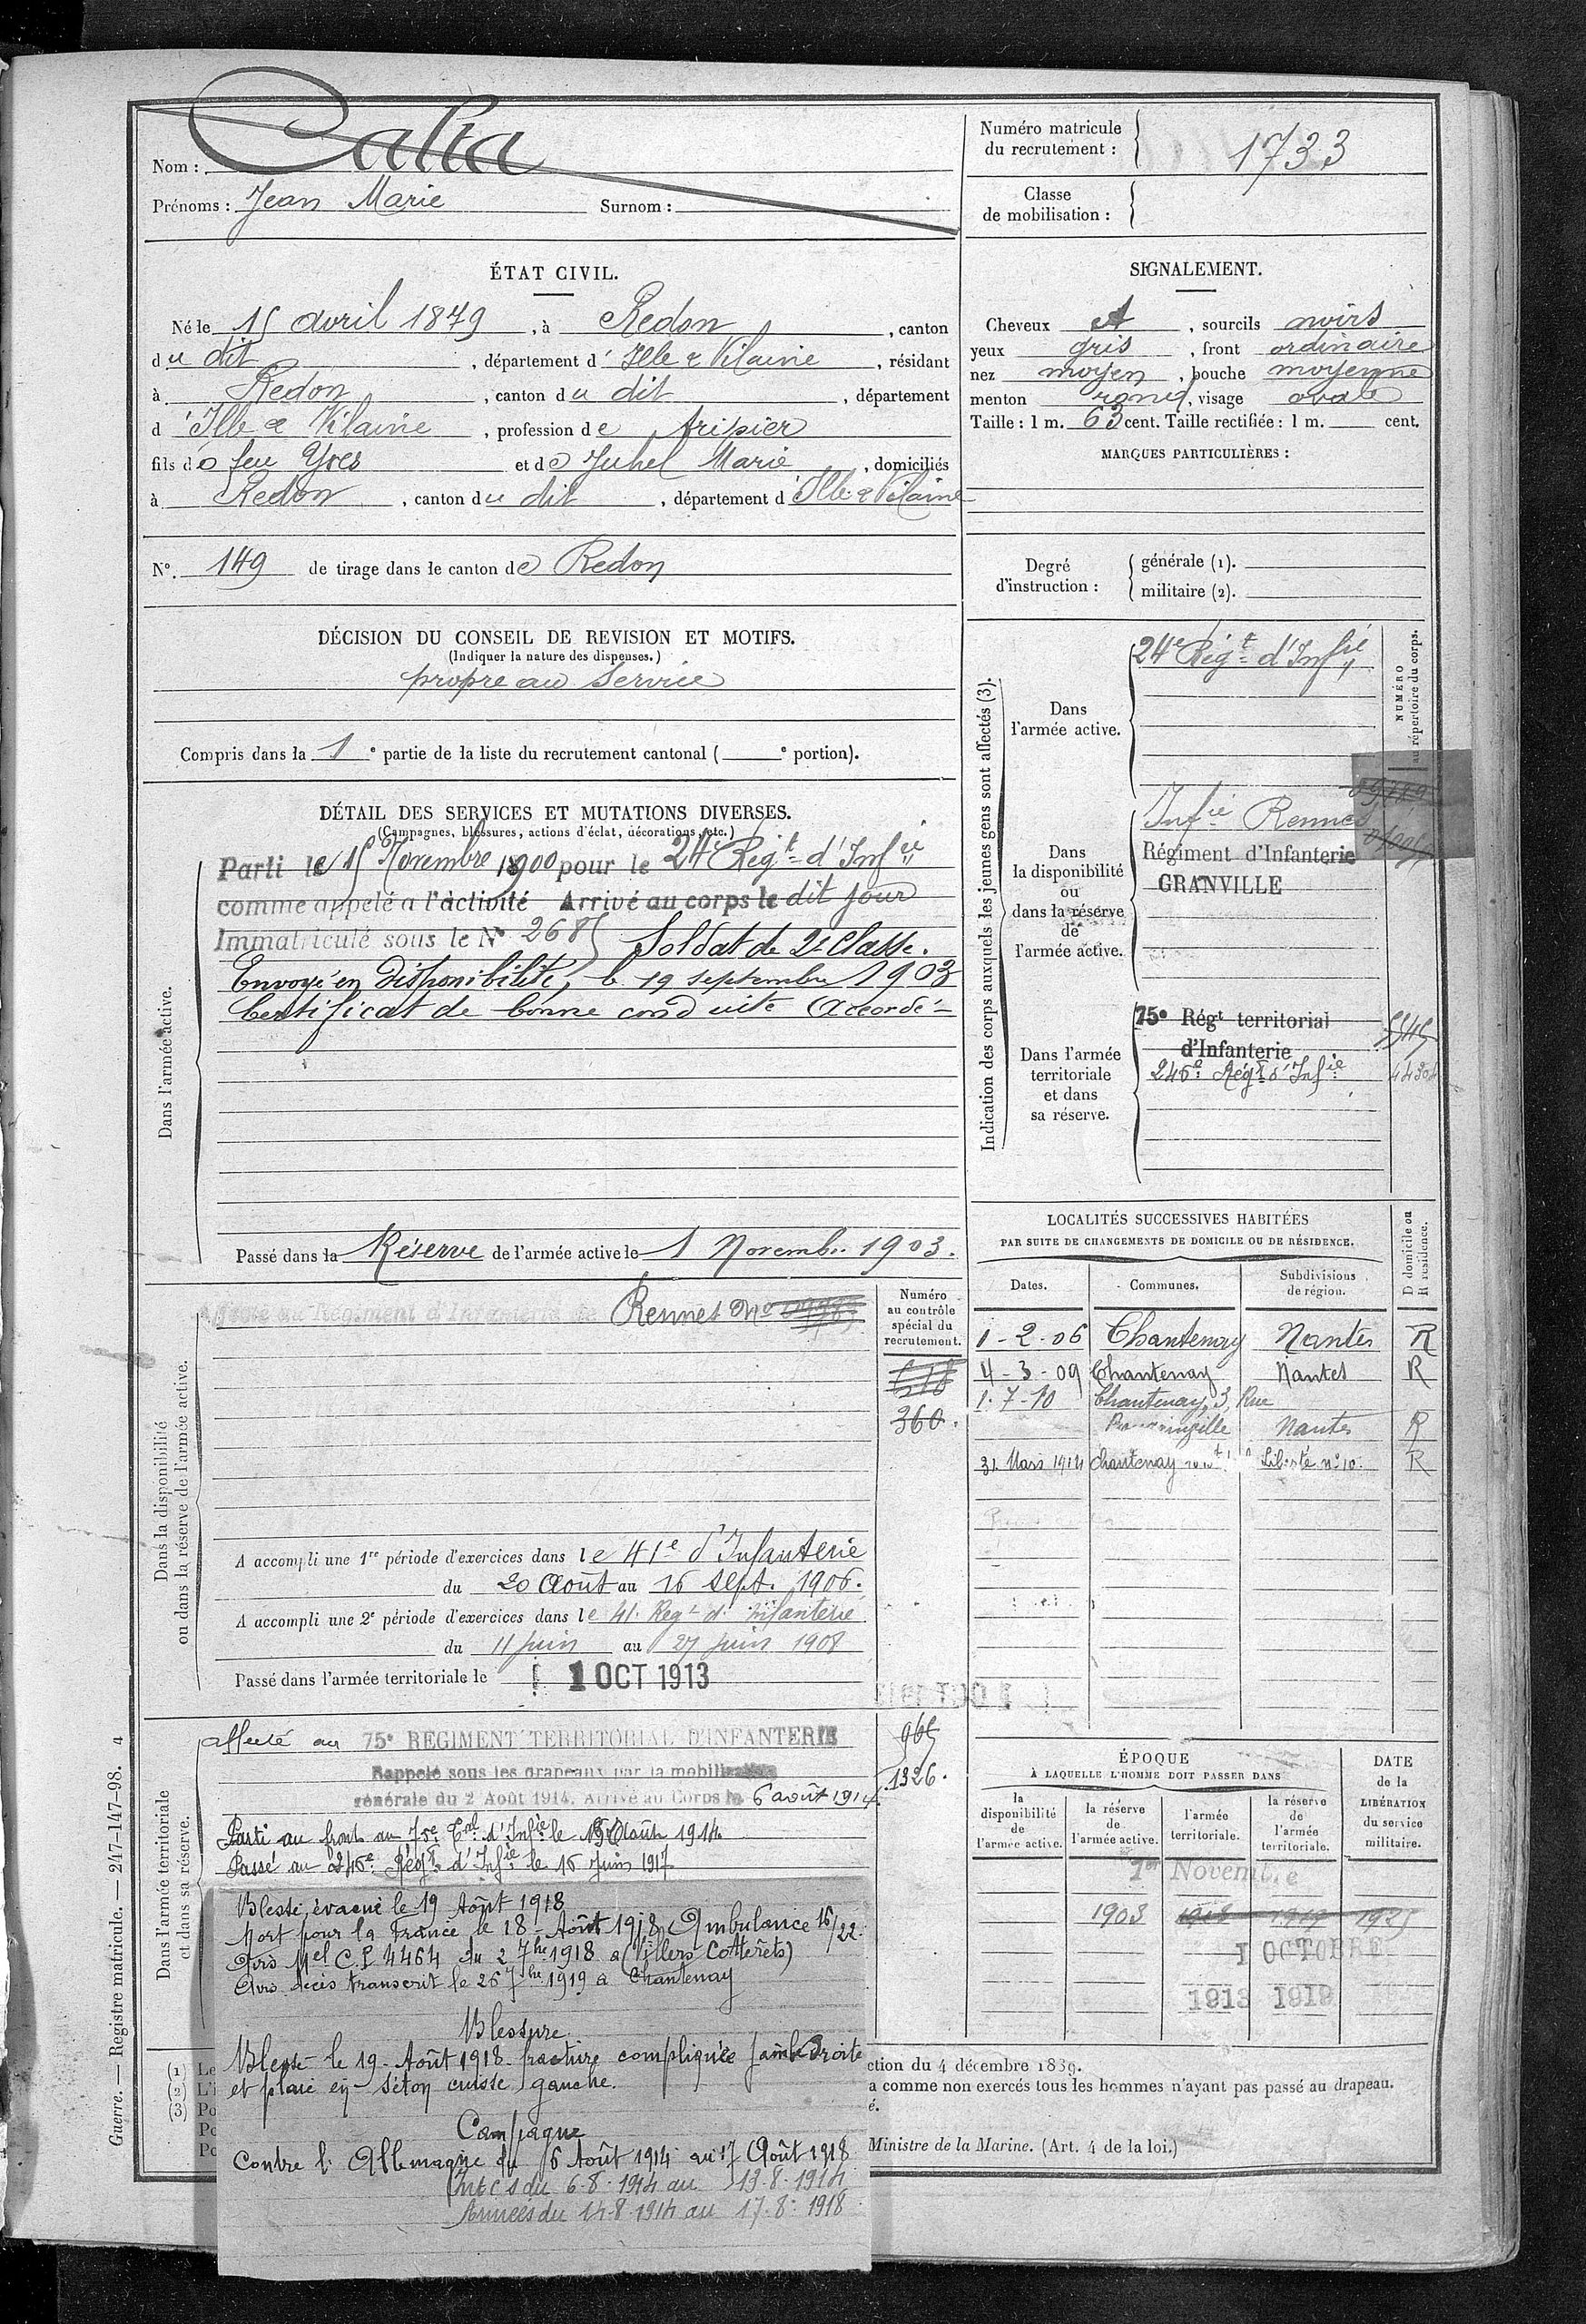 Nom : Calta
Prénoms : Jean Marie Surnom :
Numéro matricule du recrutement : 1733
Classe de mobilisation :
ÉTAT CIVIL.
Né le 15 avril 1879, à Redon, canton
du dit, département d'Ille & Vilaine, résidant
à Redon, canton du dit, département
d'Ille & Vilaine, profession de fripier
fils de feu Yves et de Juhel Marie, domiciliés
à Redon, canton du dit, département d'Ille & Vilaine
N°. 149 de tirage dans le canton de Redon
DÉCISION DU CONSEIL DE REVISION ET MOTIFS.
(Indiquer la nature des dispenses.)
propre au service
Compris dans la 1e partie de la liste du recrutement cantonal ( e portion).
DÉTAIL DES SERVICES ET MUTATIONS DIVERSES.
(Campagnes, blessures, actions d'éclat, décorations, etc.)
Dans l'armée active.
Parti le 15 Novembre 1900 pour le 24e Régt d'Infie
comme appelé à l'activité Arrivé au corps le dit jour
Immatriculé sous le N° 2685 Soldat de 2e Classe.
Envoyé en Disponibilité, le 19 septembre 1903
Certificat de bonne conduite Accordé
Passé dans la Réserve de l'armée active le 1 Novembre 1903.
Dans la disponibilité ou dans la réserve de l'armée active.
Affecté au Régiment d'Infanterie de Rennes No
Numéro au contrôle spécial du recrutement.
360.
A accompli une 1re période d'exercices dans le 41e d'Infanterie
du 20 Août au 16 Sept. 1906.
A accompli une 2e période d'exercices dans le 41. Regt d'infanterie
du 11 juin au 27 juin 1908
Passé dans l'armée territoriale le 1 OCT 1913
Dans l'armée territoriale et dans sa réserve.
affecté au 75e RÉGIMENT TERRITORIAL D'INFANTERIE
965
Rappelé sous les drapeaux par la mobilisation
1326.
générale du 2 Août 1914. Arrivé au Corps le 6 août 1914.
Parti au front au 75e Tal d'Infie le Août 1914
Passé au 246e Régt d'Infie le 16 Juin 1917
Blessé, évacué le 19 Août 1918
Mort pour la France le 18 Août 1918 Ambulance 16/22.
Avis Mel C.P 4464 du 2 7bre 1918 à (Villers Cotterêts)
Avis décès transcrit le 26 7bre 1919 à Chantenay
Blessure
Blessé le 19 Août 1918 fracture compliquée jambe droite
et plaie en séton cuisse gauche.
Campagne
Contre l'Allemagne du 6 Août 1914 au 17 Août 1918
Int c s du 6-8-1914 au 13-8-1914
Armées du 14-8-1914 au 17-8-1918
SIGNALEMENT.
Cheveux et, sourcils noirs
yeux gris, front ordinaire
nez moyen, bouche moyenne
menton rond, visage ovale
Taille : 1 m. 63 cent. Taille rectifiée : 1 m. cent.
MARQUES PARTICULIÈRES :
Degré d'instruction :
générale (1).
militaire (2).
Indication des corps auxquels les jeunes gens sont affectés (3).
NUMÉRO au répertoire du corps.
Dans l'armée active.
24e Régt d'Infie
Dans la disponibilité ou dans la réserve de l'armée active.
Infie Rennes
Régiment d'Infanterie
GRANVILLE
Dans l'armée territoriale et dans sa réserve.
75e Régt territorial
d'Infanterie
246e Régt d'Infie
LOCALITÉS SUCCESSIVES HABITÉES
PAR SUITE DE CHANGEMENTS DE DOMICILE OU DE RÉSIDENCE.
Dates. Communes. Subdivisions de région. D domicile ou R résidence.
1-2-06 Chantenay Nantes R
4-3-09 Chantenay Nantes R
1-7-10 Chantenay, 3, Rue
Nantes R
31 Mars 1914 Chantenay Liberté n° 10. R
ÉPOQUE
À LAQUELLE L'HOMME DOIT PASSER DANS
DATE de la LIBÉRATION du service militaire.
la disponibilité de l'armée active.
la réserve de l'armée active.
l'armée territoriale.
la réserve de l'armée territoriale.
1er Novembre
1903 1919 1925
1 OCTOBRE
1913 1919
(1) Le
(2) L'i
(3) Po
Po
Po
ction du 4 décembre 1889.
a comme non exercés tous les hommes n'ayant pas passé au drapeau.
é.
Ministre de la Marine. (Art. 4 de la loi.)
Guerre. — Registre matricule. — 247-147-98. 4